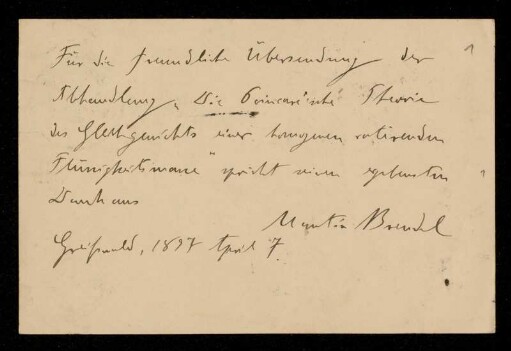 Für die freundliche Übersendung der
Abhandlung „Die Poincaré'sche Theorie
des Gleichgewichts einer homogenen rotirenden
Flüssigkeitsmasse" spricht seinen ergebensten
Dank aus
Martin Brendel
Greifswald, 1897 April 7.
1